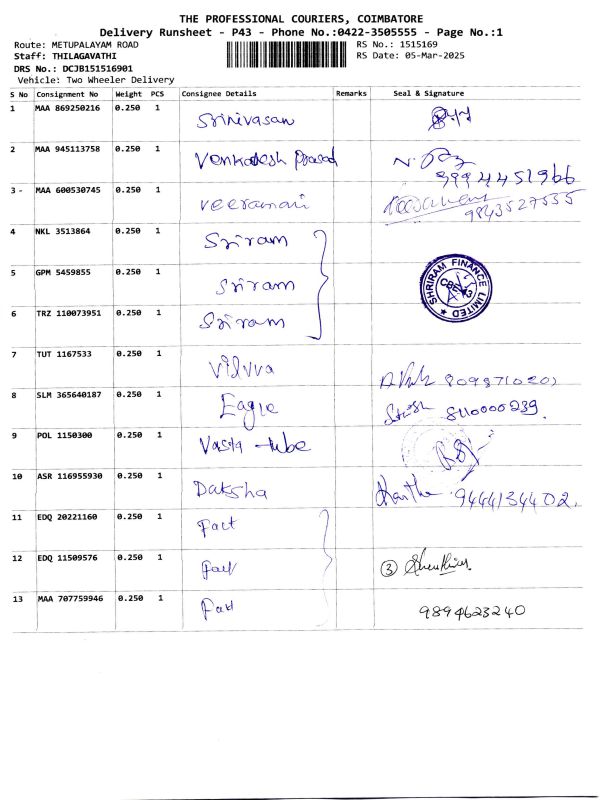 THE PROFESSIONAL COURIERS, COIMBATORE
Delivery Runsheet - P43 - Phone No.:0422-3505555 - Page No.:1
Route: METUPALAYAM ROAD RS No.: 1515169
Staff: THILAGAVATHI RS Date: 05-Mar-2025
DRS No.: DCJB151516901
Vehicle: Two Wheeler Delivery
S No Consignment No Weight PCS Consignee Details Remarks Seal & Signature
1 MAA 869250216 0.250 1 Srinivasan
2 MAA 945113758 0.250 1 Venkatesh Prasad 9994451966
3 - MAA 600530745 0.250 1 veeramani 9843527555
4 NKL 3513864 0.250 1 Sriram
5 GPM 5459855 0.250 1 Sriram SHRIRAM FINANCE LIMITED
6 TRZ 110073951 0.250 1 Sriram
7 TUT 1167533 0.250 1 Vilvva
8 SLM 365640187 0.250 1 Eagle 8110000239
9 POL 1150300 0.250 1 Vasta tube
10 ASR 116955930 0.250 1 Daksha 9444134402
11 EDQ 20221160 0.250 1 Fact
12 EDQ 11509576 0.250 1 ③
13 MAA 707759946 0.250 1 9894623240